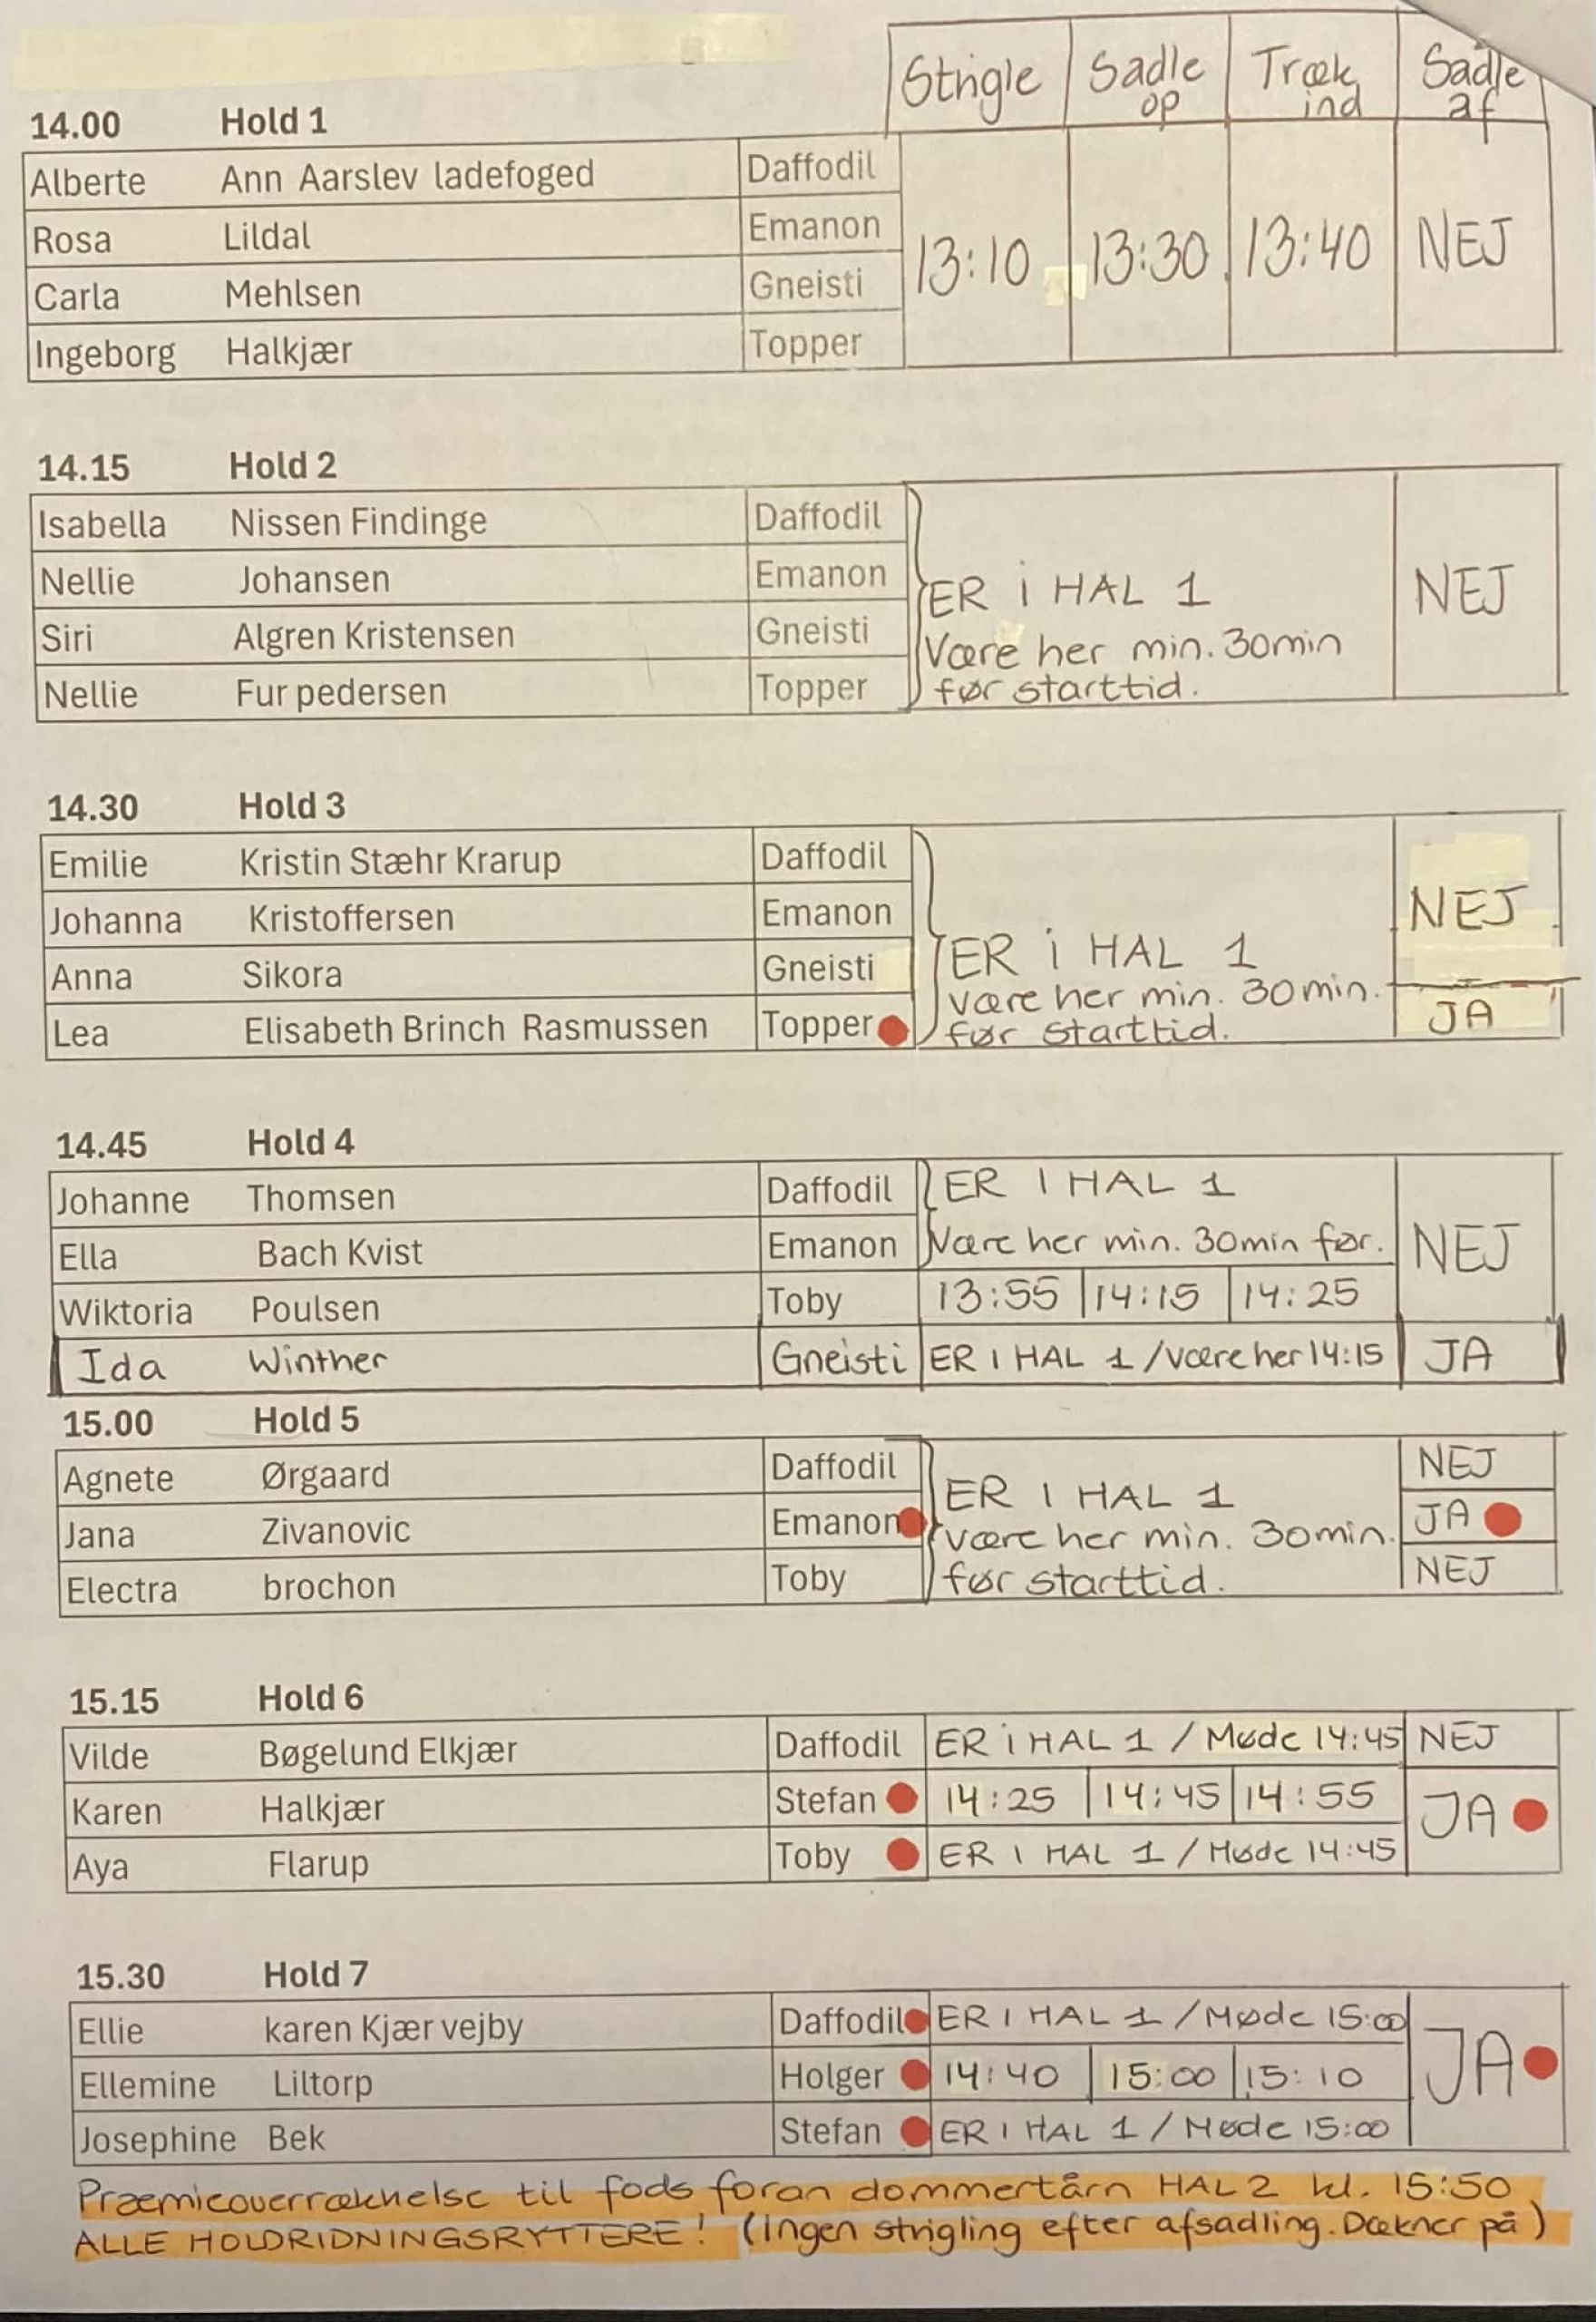 Strigle Sadle op Træk ind Sadle af
14.00 Hold 1
Alberte Ann Aarslev ladefoged Daffodil
Rosa Lildal Emanon
13:10 13:30 13:40 NEJ
Carla Mehlsen Gneisti
Ingeborg Halkjær Topper
14.15 Hold 2
Isabella Nissen Findinge Daffodil
Nellie Johansen Emanon
ER i HAL 1 NEJ
Siri Algren Kristensen Gneisti
Være her min. 30min
Nellie Fur pedersen Topper
før starttid.
14.30 Hold 3
Emilie Kristin Stæhr Krarup Daffodil
Johanna Kristoffersen Emanon
NEJ
Anna Sikora Gneisti
ER i HAL 1
være her min. 30min.
Lea Elisabeth Brinch Rasmussen Topper
før starttid. JA
14.45 Hold 4
Johanne Thomsen Daffodil ER I HAL 1
Ella Bach Kvist Emanon Være her min. 30min før. NEJ
Wiktoria Poulsen Toby 13:55 14:15 14:25
Ida Winther Gneisti ER I HAL 1 /være her 14:15 JA
15.00 Hold 5
Agnete Ørgaard Daffodil ER I HAL 1 NEJ
Jana Zivanovic Emanon være her min. 30min. JA
Electra brochon Toby før starttid. NEJ
15.15 Hold 6
Vilde Bøgelund Elkjær Daffodil ER i HAL 1 / Møde 14:45 NEJ
Karen Halkjær Stefan 14:25 14:45 14:55 JA
Aya Flarup Toby ER I HAL 1 / Møde 14:45
15.30 Hold 7
Ellie karen Kjær vejby Daffodil ER I HAL 1 / Møde 15:00
Ellemine Liltorp Holger 14:40 15:00 15:10 JA
Josephine Bek Stefan ER I HAL 1 / Møde 15:00
Præmieoverrækkelse til fods foran dommertårn HAL 2 kl. 15:50
ALLE HOLDRIDNINGSRYTTERE! (Ingen strigling efter afsadling. Dækner på)